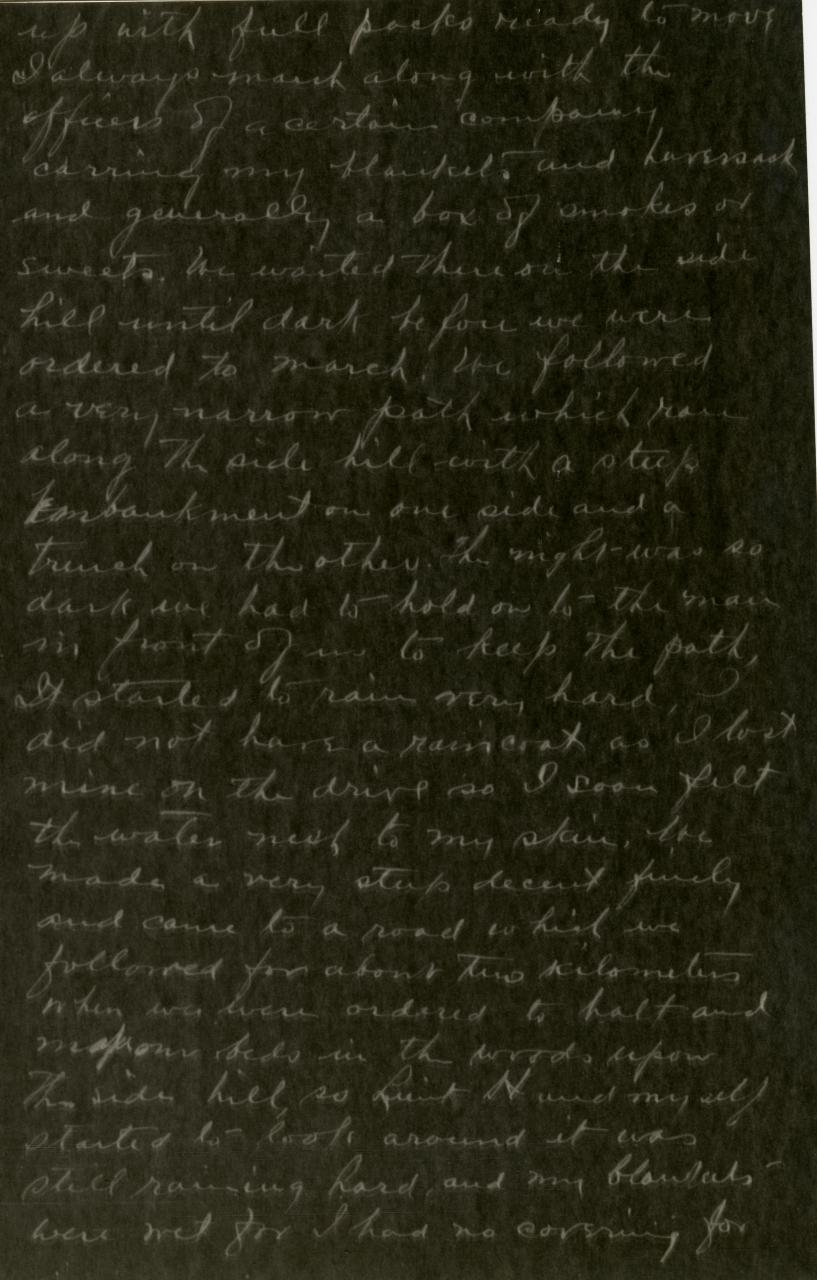 up with full packs ready to move
I always march along with the
officers of a certain company
carrying my blankets and haversack
and generally a box of smokes or
sweets. We waited there on the side
hill until dark before we were
ordered to march. We followed
a very narrow path which ran
along the side hill with a steep
Embankment on one side and a
trench on the other. The night was so
dark we had to hold on to the man
in front of us to keep the path,
It started to rain very hard, I
did not have a raincoat as I lost
mine on the drive so I soon felt
the water next to my skin. We
made a very steep decent finely
and came to a road which we
followed for about two kilometers
when we were ordered to halt and
our beds in the woods upon
the side hill, so Lieut H and myself
started to look around it was
still raining hard and my blankets
were wet for I had no covering for